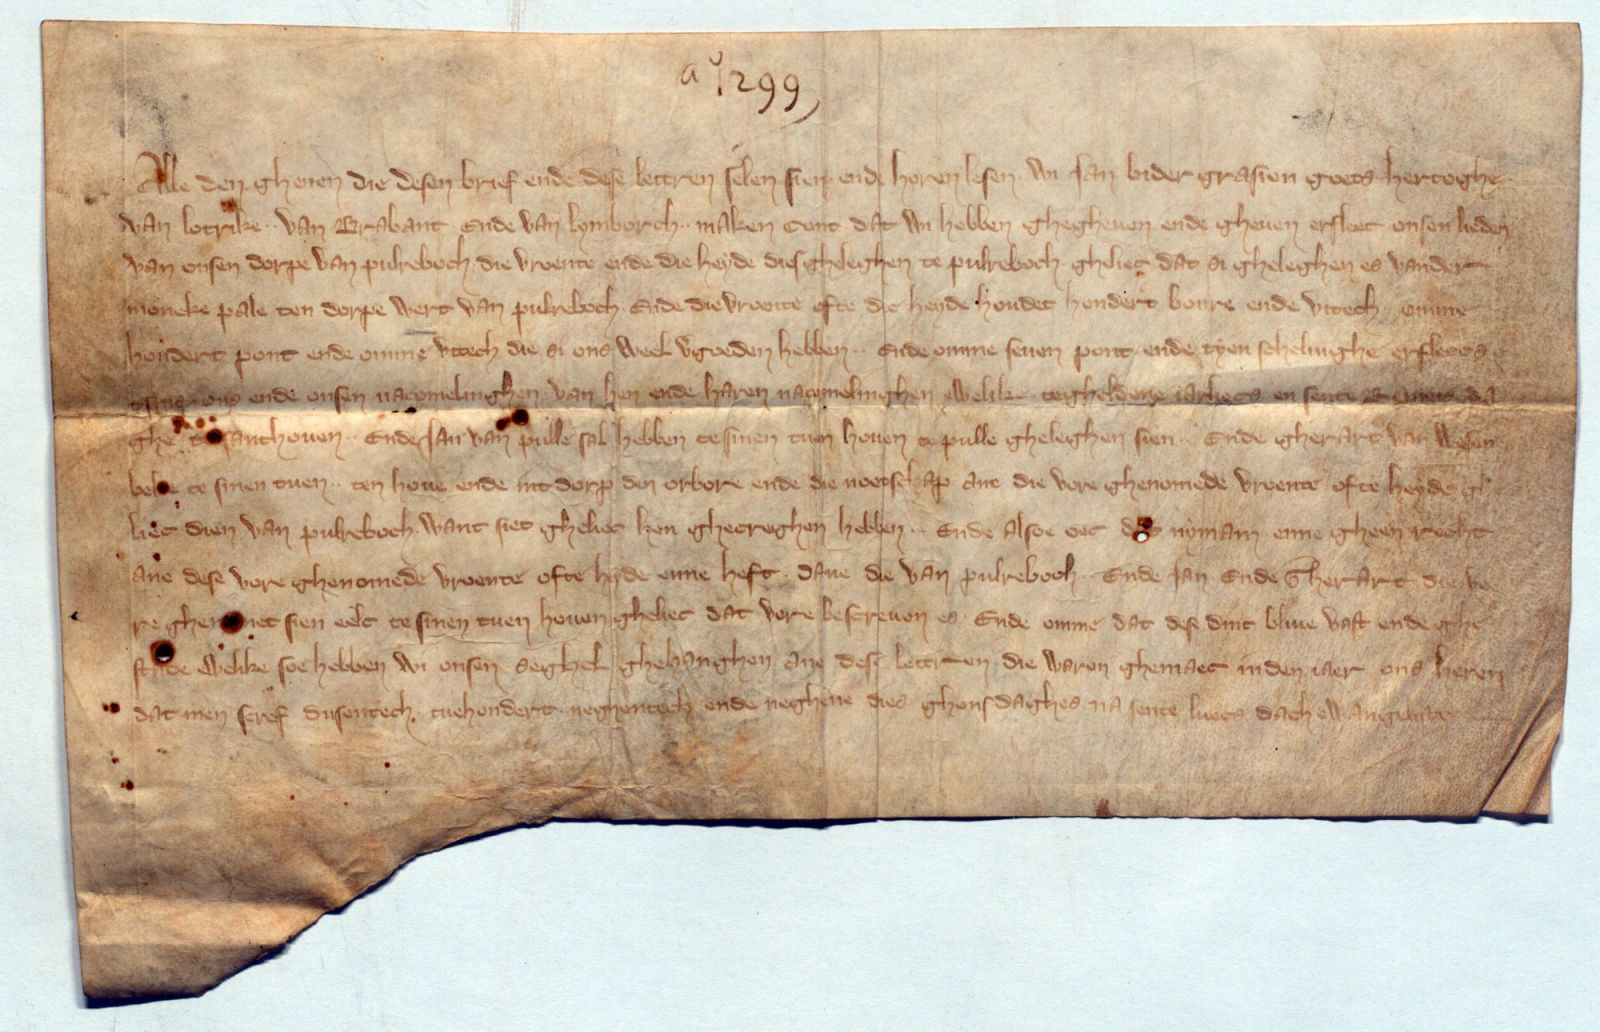 aº 1299
Alle den ghenen die desen brief ende dese lettren selen sien ende horen lesen wi Jan bider grasien goets hertoghe
van lotrike van Brabant Ende van lymborch maken cont dat wi hebben ghegheuen ende gheuen erfleec onsen lieden
van onsen dorpe van pulreboch die vroente ende die heyde die gheleghen te pulreboch gheliec dat si gheleghen es vander
moneke pale ten dorpe wert van pulreboch Ende die vroente ofte die heyde houdet hondert bonre ende vitech omme
hondert pont ende omme vitech die si ons weel vgouden hebben Ende omme seuen pont ende tyen schelinghe erfleecs
tsins ons ende onsen nacomelinghen van hen ende haren nacomelinghen ewelike te gheldene iarlecs en sente da
ghe te santhouen Ende Jan van pulle sal hebben te sinen tuen houen te pulle gheleghen sien Ende gherart van Wesen
beke te sinen tuen ten houe ende int dorp den orbore ende die noetscap ane die vore ghenomede vroente ofte heyde gh
liec dien van pulreboch want siet gheliec hen ghecreghen hebben Ende alsoe oec dat nyman enne gheen recht
ane dese vore ghenomede vroente ofte heyde enne heft dane die van pulreboch Ende Jan Ende Gherart die vo
re ghenomet sien eelc te sinen tuen houen gheliec dat vore bescreuen es Ende omme dat dese dinc bliue vast ende ghe
stade ewelike soe hebben wi onsen seghel ghehanghen ane dese lettren die waren ghemaect inden iaer ons heren
dat men scref dusentech tuehondert neghentech ende neghene dies ghonsdaghes na sente luecs dach ewangeliste